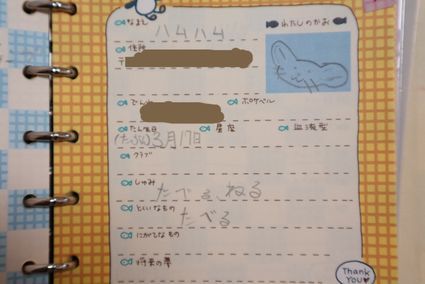 なまえ
ハムハム
わたしのかお
住所
〒
でんわ
ポケベル
たん生日
星座
血液型
(たぶん)3月17日
クラブ
しゅみ
たべる、ねる
とくいなもの
たべる
にがてなもの
将来の夢
THANK YOU